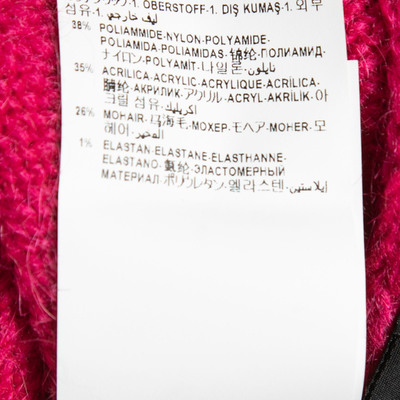 1. OBERSTOFF-1. DIŞ KUMAŞ-1. 외부
섬유-1. ليف خارجي-1.
38% POLIAMMIDE-NYLON-POLYAMIDE-
POLIAMIDA-POLIAMIDAS-锦纶-ПОЛИАМИД-
ナイロン-POLYAMIT-나일론-نايلون-
35% ACRILICA-ACRYLIC-ACRYLIQUE-ACRÍLICA-
腈纶-АКРИЛИК-アクリル-ACRYL-AKRİLİK-아
크릴 섬유-اكريليك-
26% MOHAIR-马海毛-МОХЕР-モヘア-MOHER-모
헤어-الموهير-
1% ELASTAN-ELASTANE-ELASTHANNE-
ELASTANO-氨纶-ЭЛАСТОМЕРНЫЙ
МАТЕРИАЛ-ポリウレタン-엘라스텐-إيلاستين-